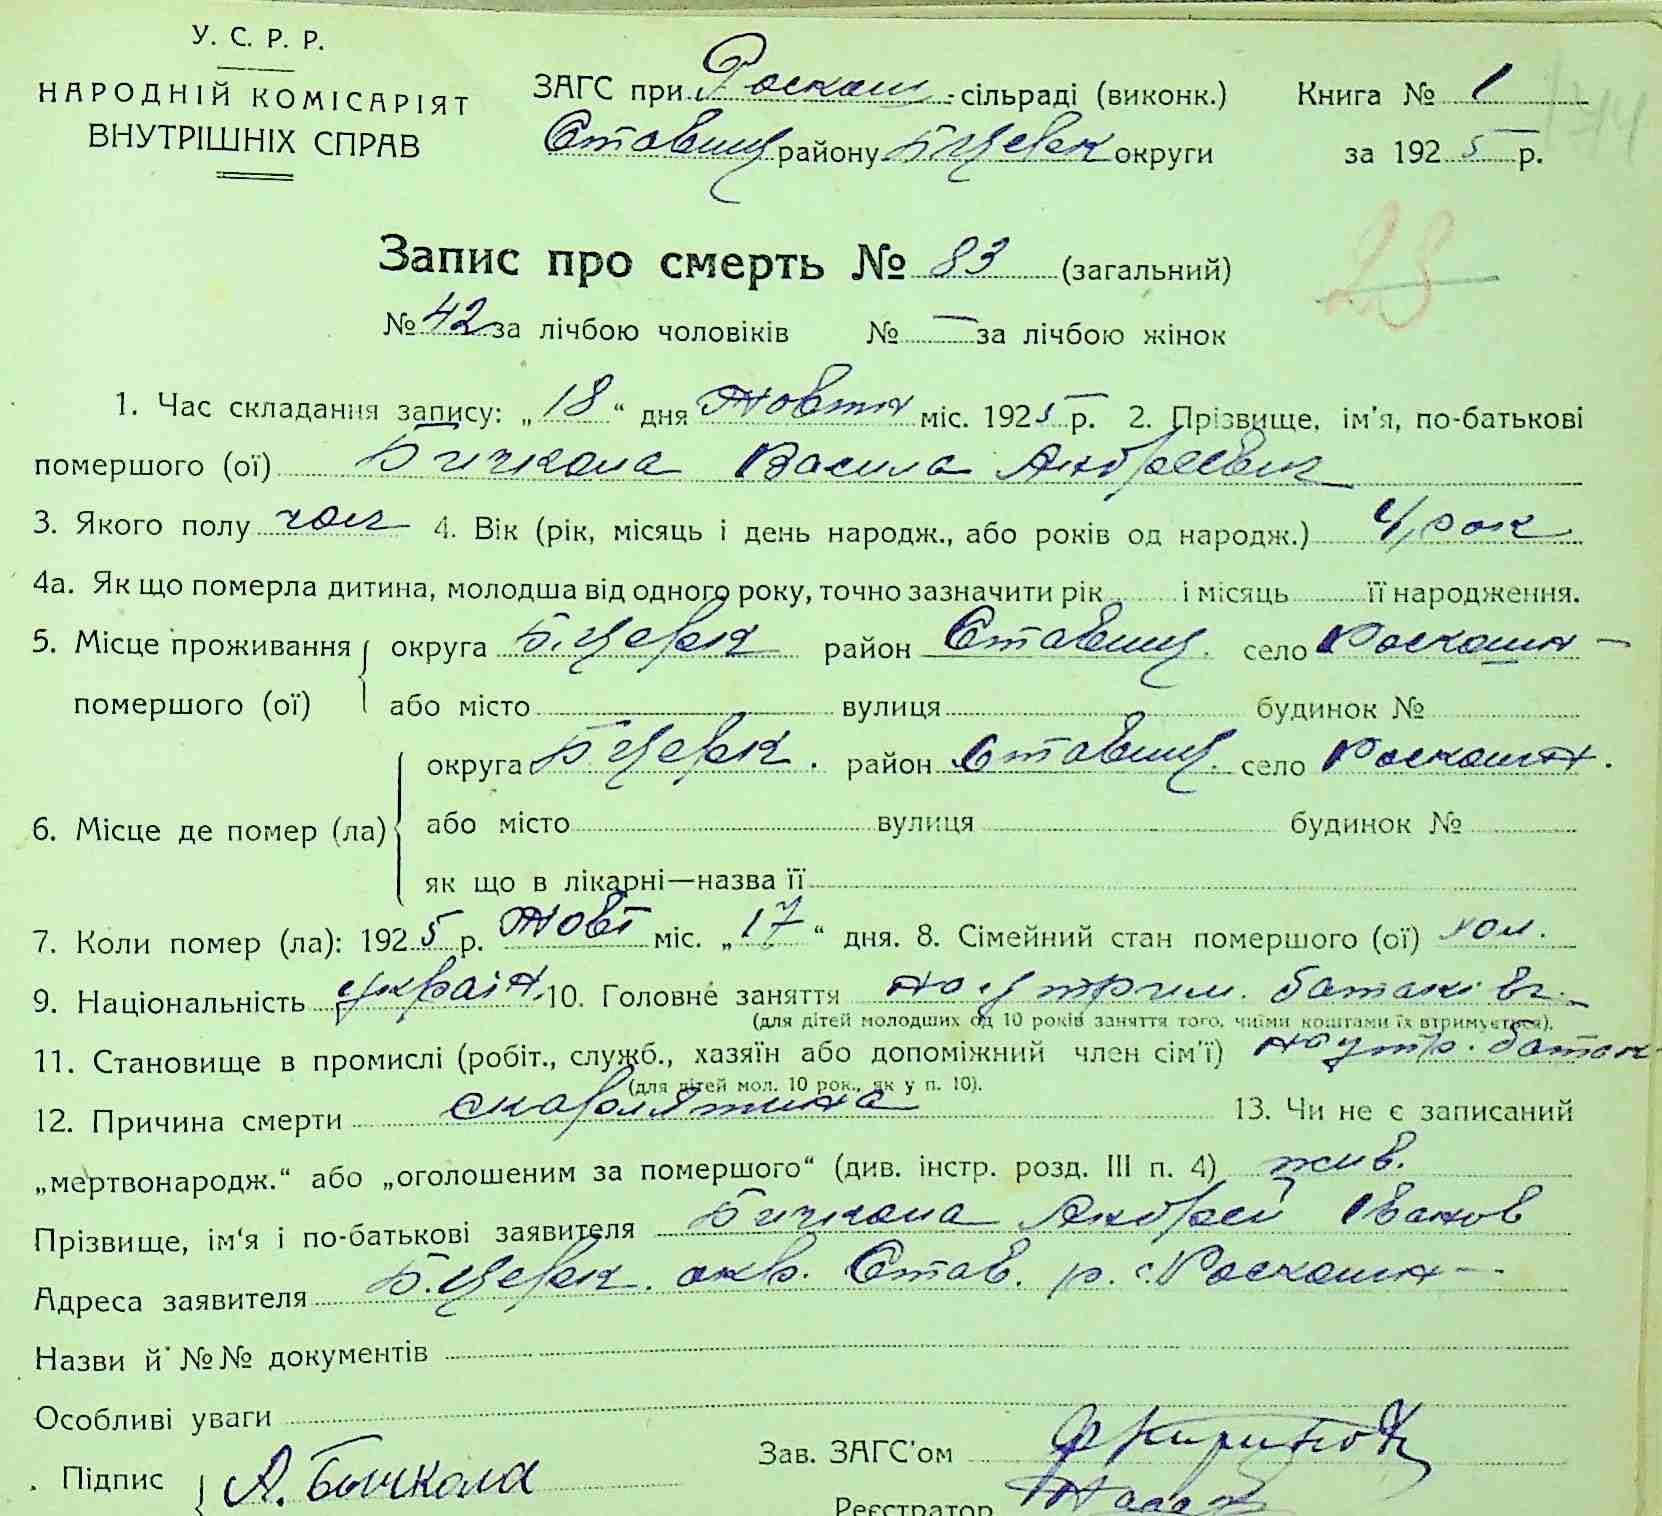 У. С. Р. Р.
НАРОДНІЙ КОМІСАРІЯТ
ВНУТРІШНІХ СПРАВ
ЗАГС при Роскош. сільраді (виконк.)
Ставищ району Б Церк округи
Книга № 1
за 1925 р.
144
Запис про смерть № 83 (загальний)
23
№ 42 за лічбою чоловіків № — за лічбою жінок
1. Час складання запису: „18“ дня Жовтн міс. 1925 р. 2. Прізвище, ім'я, по-батькові
помершого (ої) Бичкола Василь Андреєвич
3. Якого полу чол 4. Вік (рік, місяць і день народж., або років од народж.) 4 рок
4а. Як що померла дитина, молодша від одного року, точно зазначити рік і місяць її народження.
5. Місце проживання округа Б.Церк район Ставищ. село Роскошн —
помершого (ої) або місто вулиця будинок №
округа Б Церк. район Ставищ. село Роскошн.
6. Місце де помер (ла) або місто вулиця будинок №
як що в лікарні—назва її
7. Коли помер (ла): 1925 р. Жовт міс. „17“ дня. 8. Сімейний стан помершого (ої) хол.
9. Національність україн. 10. Головне заняття на утрим. батьків
(для дітей молодших од 10 років заняття того, чиїми коштами їх втримується).
11. Становище в промислі (робіт., служб., хазяїн або допоміжний член сім'ї) на утр. батьк
(для дітей мол. 10 рок., як у п. 10).
12. Причина смерти скарлятина 13. Чи не є записаний
„мертвонародж.“ або „оголошеним за помершого“ (див. інстр. розд. III п. 4) жив.
Прізвище, ім'я і по-батькові заявителя Бичкола Андрей Іванов
Адреса заявителя Б.Церк. окр. Став. р. с. Роскошн —
Назви й №№ документів
Особливі уваги
Зав. ЗАГС'ом
Підпис А. Бычкола
Реєстратор